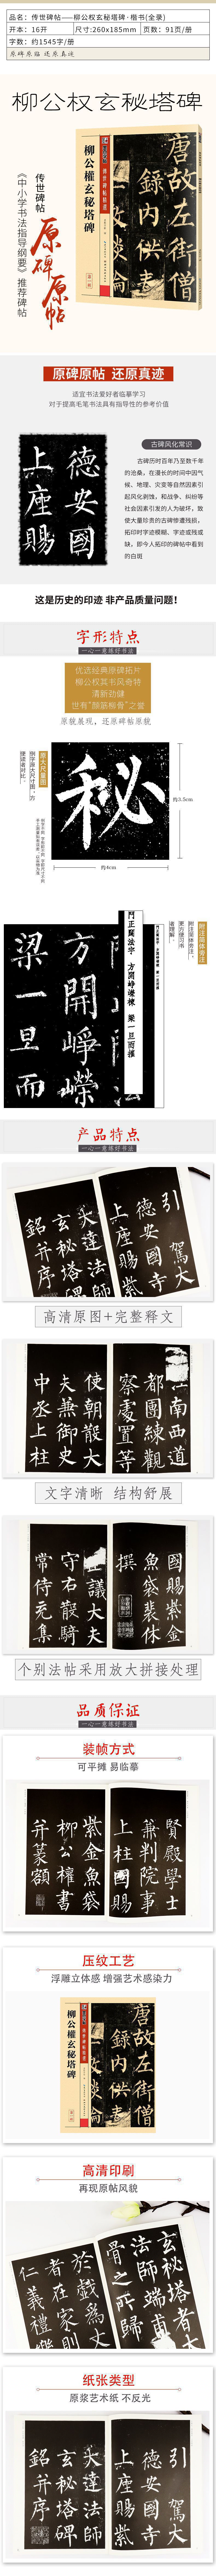 品名：传世碑帖——柳公权玄秘塔碑·楷书(全录)
开本：16开
尺寸:260x185mm
页数：91页/册
字数：约1545字/册
原碑原临 还原真迹
柳公权玄秘塔碑
《中小学书法指导纲要》推荐碑帖
传世碑帖
原碑原帖
柳公權玄秘塔碑
唐故左街僧
錄内供奉
原碑原帖 还原真迹
适宜书法爱好者临摹学习
对于提高毛笔书法具有指导性的参考价值
德安國
上座賜
古碑风化常识
古碑历时百年乃至数千年
的沧桑，在漫长的时间中因气
候、地理、灾变等自然因素引
起风化剥蚀，和战争、纠纷等
社会因素引发的人为破坏，致
使大量珍贵的古碑惨遭残损，
拓印时字迹模糊、字迹或残或
缺，即今人拓印的碑帖中看到
的白斑
这是历史的印迹 非产品质量问题！
字形特点
一心一意练好书法
优选经典原碑拓片
柳公权其书风奇特
清新劲健
世有“颜筋柳骨”之誉
原貌展现，还原碑帖原貌
秘
约3.5cm
约4cm
方開崢嶸
梁一旦而
門正闢法宇 方開崢嶸棟 梁一旦而摧
附注简体旁注
附注简体旁注，
更方便习书
者理解。
产品特点
一心一意练好书法
引駕大
德安國寺
上座賜紫
大達法師
玄秘塔碑
銘并序
高清原图+完整释文
南西道
都團練觀
察處置等
使朝散大
夫兼御史
中丞上柱
文字清晰 结构舒展
國賜紫金
魚袋裴休
撰
正議大夫
守右散騎
常侍充集
个别法帖采用放大拼接处理
品质保证
一心一意练好书法
装帧方式
可平摊 易临摹
賢殿學士
兼判院事
上柱國賜
紫金魚袋
柳公權書
并篆額
压纹工艺
浮雕立体感 增强艺术感染力
柳公權玄秘塔碑
唐故左街僧
錄内供奉
高清印刷
再现原帖风貌
玄秘塔者大
法師端甫
骨之所歸
於戲爲
者在家則
仁義禮樂
纸张类型
原浆艺术纸 不反光
引駕大
德安國寺
上座賜紫
大達法師
玄秘塔碑
銘并序